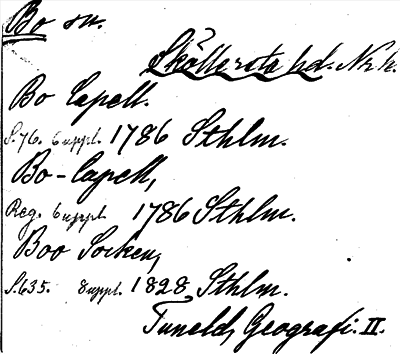 Bo sn.
Sköllersta hd. Nrk.
Bo Capell.
S. 76. 6 uppl. 1786 Sthlm.
Bo-Capell,
Reg. 6 uppl. 1786 Sthlm.
Boo Socken,
S. 635. 8 uppl. 1828, Sthlm.
Tuneld, Geografi. II.